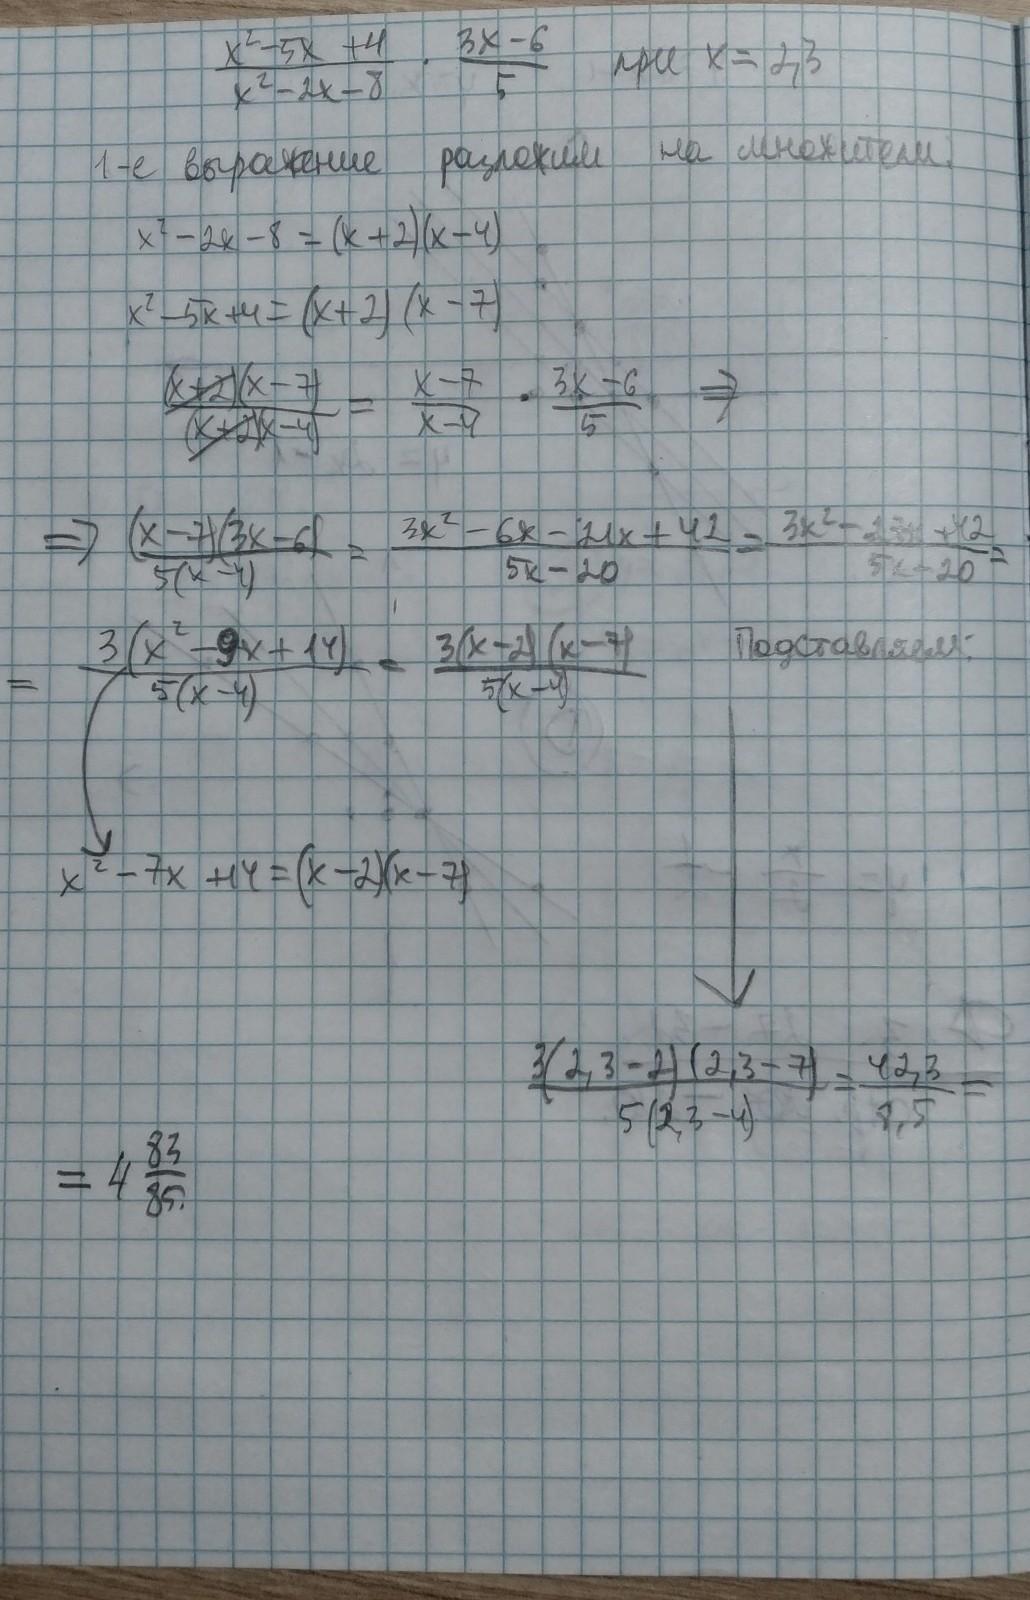 x² - 5x + 4 / x² - 2x - 8 · 3x - 6 / 5 при x = 2,3
1-е выражение разложим на множители.
x² - 2x - 8 = (x+2)(x-4)
x² - 5x + 4 = (x+2)(x-7)
(x+2)(x-7) / (x+2)(x-4) = x-7 / x-4 · 3x-6 / 5 ⇒
⇒ (x-7)(3x-6) / 5(x-4) = 3x² - 6x - 21x + 42 / 5x - 20 = 3x² - + 42 / 5x - 20 =
= 3(x² - 9x + 14) / 5(x-4) = 3(x-2)(x-7) / 5(x-4) Подставляем:
x² - 7x + 14 = (x-2)(x-7)
3(2,3-2)(2,3-7) / 5(2,3-4) = 42,3 / 8,5 =
= 4 83/85